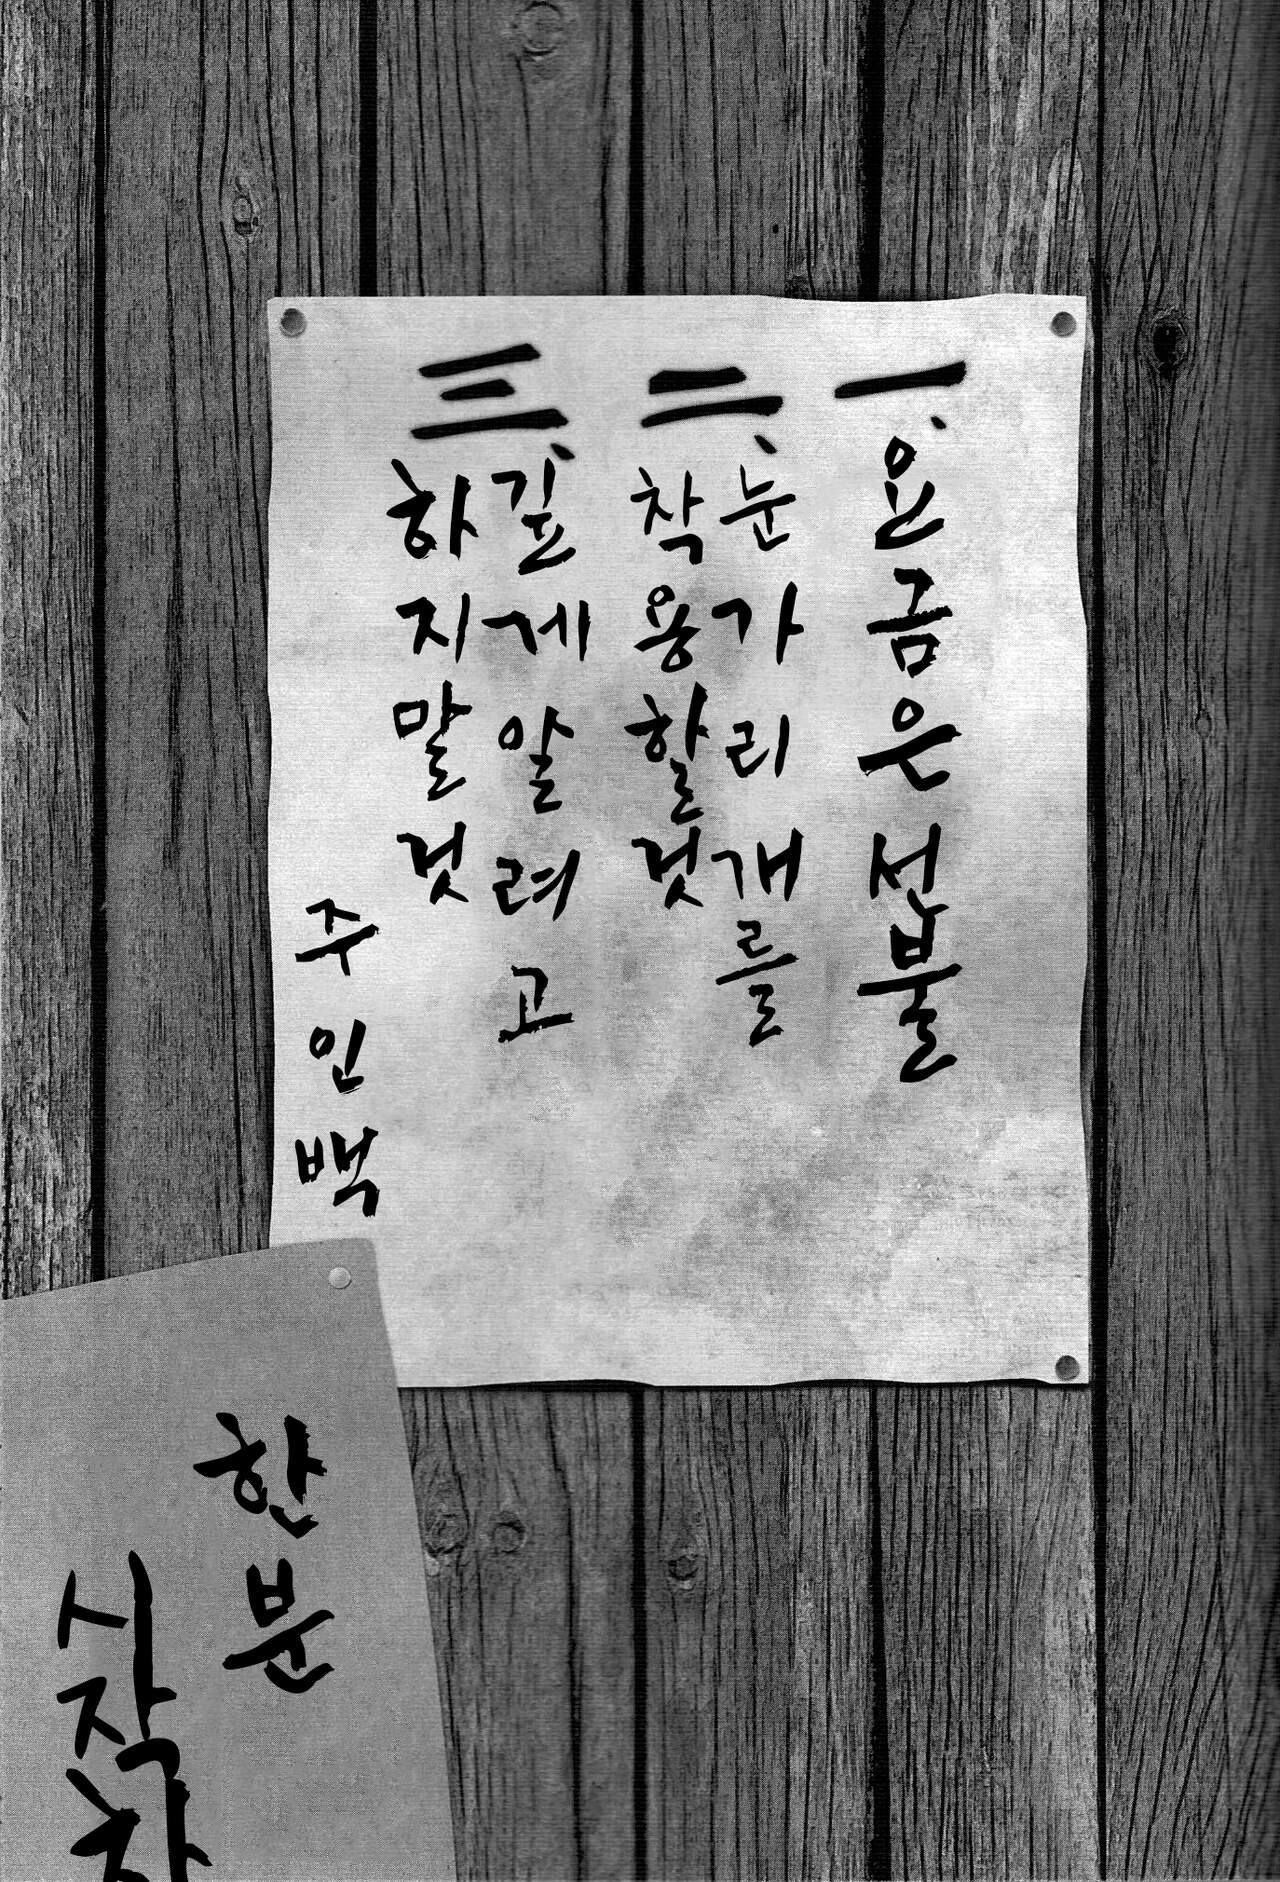 一. 요금은 선불
二. 눈가리개를
착용할 것
三. 깊게 알려고
하지 말 것
주인백
한분
시작하